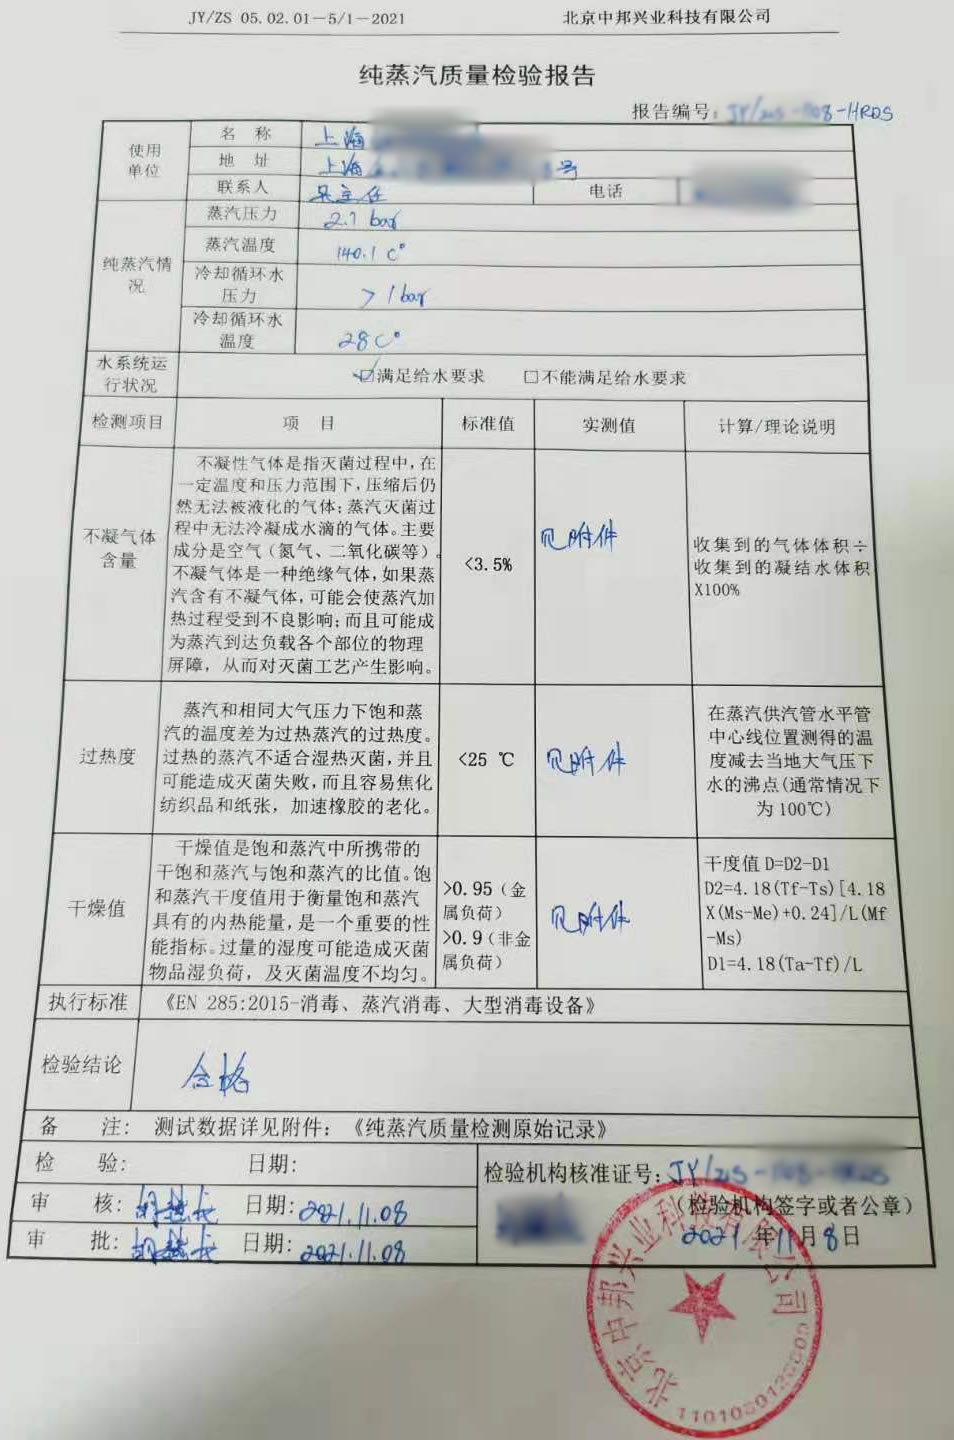 JY/ZS 05.02.01-5/1-2021 北京中邦兴业科技有限公司
纯蒸汽质量检验报告
报告编号: JY/ZS-1108-HRDS
使用单位
名 称 上海
地 址 上海 号
联系人 吴主任 电话
纯蒸汽情况
蒸汽压力 2.7 bar
蒸汽温度 140.1 C°
冷却循环水压力 >1bar
冷却循环水温度 28C°
水系统运行状况 ☑满足给水要求 □不能满足给水要求
检测项目 项 目 标准值 实测值 计算/理论说明
不凝气体含量
不凝性气体是指灭菌过程中,在
一定温度和压力范围下,压缩后仍
然无法被液化的气体;蒸汽灭菌过
程中无法冷凝成水滴的气体。主要
成分是空气(氮气、二氧化碳等)。
不凝气体是一种绝缘气体,如果蒸
汽含有不凝气体,可能会使蒸汽加
热过程受到不良影响;而且可能成
为蒸汽到达负载各个部位的物理
屏障,从而对灭菌工艺产生影响。
<3.5%
见附件
收集到的气体体积÷
收集到的凝结水体积
X100%
过热度
蒸汽和相同大气压力下饱和蒸
汽的温度差为过热蒸汽的过热度。
过热的蒸汽不适合湿热灭菌,并且
可能造成灭菌失败,而且容易焦化
纺织品和纸张,加速橡胶的老化。
<25 ℃
见附件
在蒸汽供汽管水平管
中心线位置测得的温
度减去当地大气压下
水的沸点(通常情况下
为100℃)
干燥值
干燥值是饱和蒸汽中所携带的
干饱和蒸汽与饱和蒸汽的比值。饱
和蒸汽干度值用于衡量饱和蒸汽
具有的内热能量,是一个重要的性
能指标。过量的湿度可能造成灭菌
物品湿负荷,及灭菌温度不均匀。
>0.95(金
属负荷)
>0.9(非金
属负荷)
见附件
干度值 D=D2-D1
D2=4.18(Tf-Ts)[4.18
X(Ms-Me)+0.24]/L(Mf
-Ms)
D1=4.18(Ta-Tf)/L
执行标准 《EN 285:2015-消毒、蒸汽消毒、大型消毒设备》
检验结论 合格
备 注: 测试数据详见附件:《纯蒸汽质量检测原始记录》
检 验: 日期:
审 核: 日期: 2021.11.08
审 批: 日期: 2021.11.08
检验机构核准证号: JY/ZS-1108-HRDS
(检验机构签字或者公章)
2021 年 11 月 8 日
北京中邦兴业科技有限公司